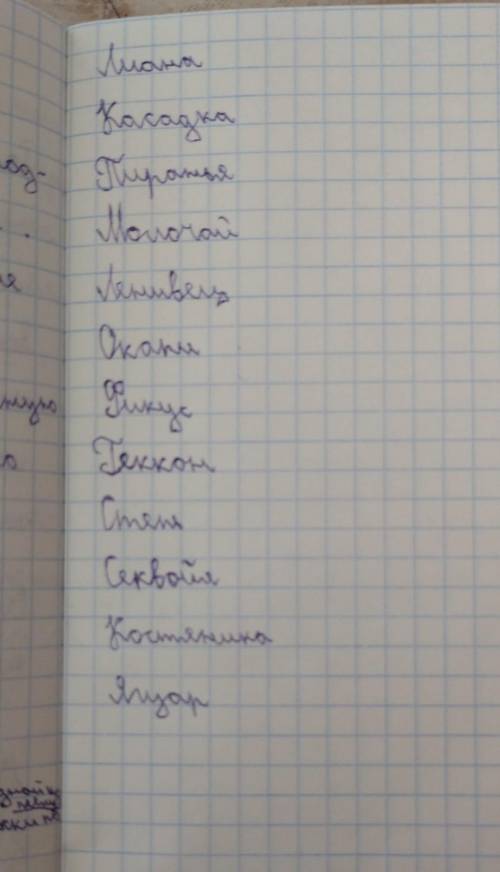 Лиана
Касадка
Пиранья
Молочай
Ленивец
Окапи
Фикус
Геккон
Степь
Секвойя
Костянника
Ягуар